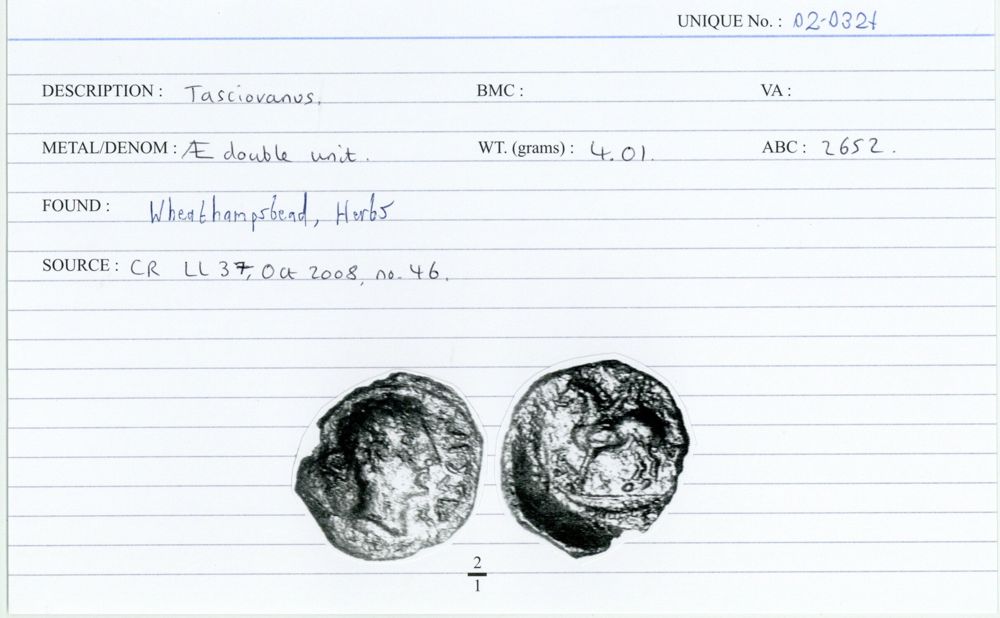 UNIQUE No. : 02-0321
DESCRIPTION : Tasciovanus. BMC : VA :
METAL/DENOM : Æ double unit. WT. (grams) : 4.01. ABC : 2652.
FOUND : Wheathampstead, Herts
SOURCE : CR LL 37, Oct 2008, no. 46.
2
1